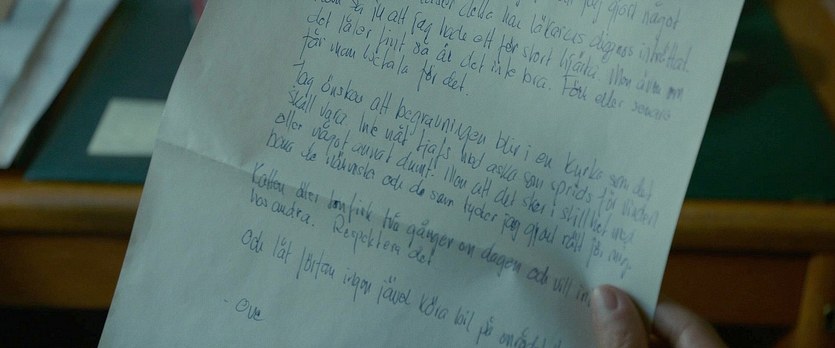 jag gjort något
detta har läkarens diagnos inträffat
ju att jag hade ett för stort hjärta. Men även om
det låter fint så är det inte bra. Förr eller senare
får man betala för det.
Jag önskar att begravningen blir i en kyrka som det
skall vara. Inte nåt tjafs med aska som sprids för vinden
eller något annat dumt. Utan att det sker i stillhet med
bara de närmsta och de som tyder jag gjort rätt för mig.
Katten äter tonfisk två gånger om dagen och vill inte
hos andra. Respektera det.
Och låt förfan ingen jävel köra bil på området
- Ove